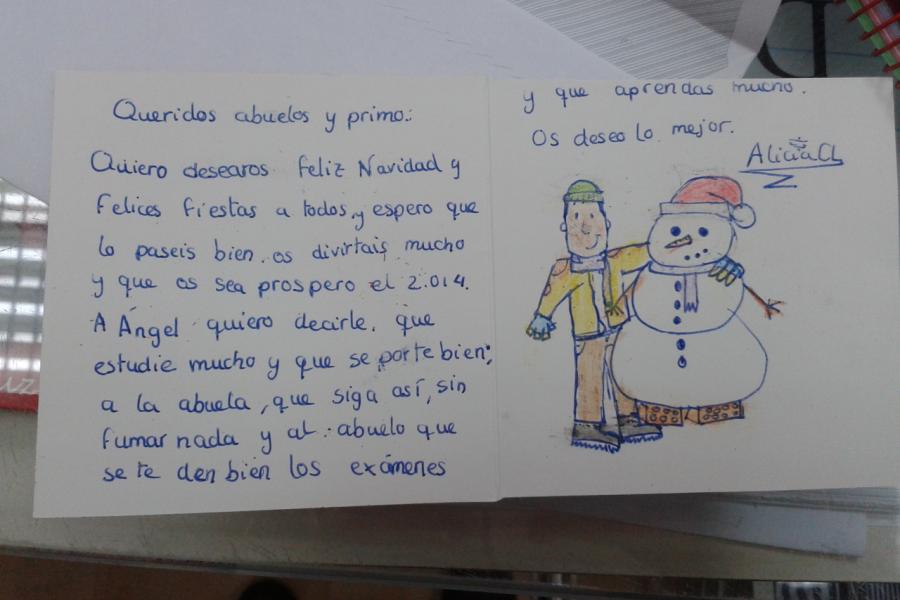 Queridos abuelos y primo:
Quiero desearos feliz Navidad y
felices fiestas a todos, y espero que
lo paseis bien, os divirtais mucho
y que os sea prospero el 2.014.
A Ángel quiero decirle, que
estudie mucho y que se porte bien;
a la abuela, que siga así, sin
fumar nada y al abuelo que
se te den bien los exámenes
y que aprendas mucho.
Os deseo lo mejor.
Alicia CL